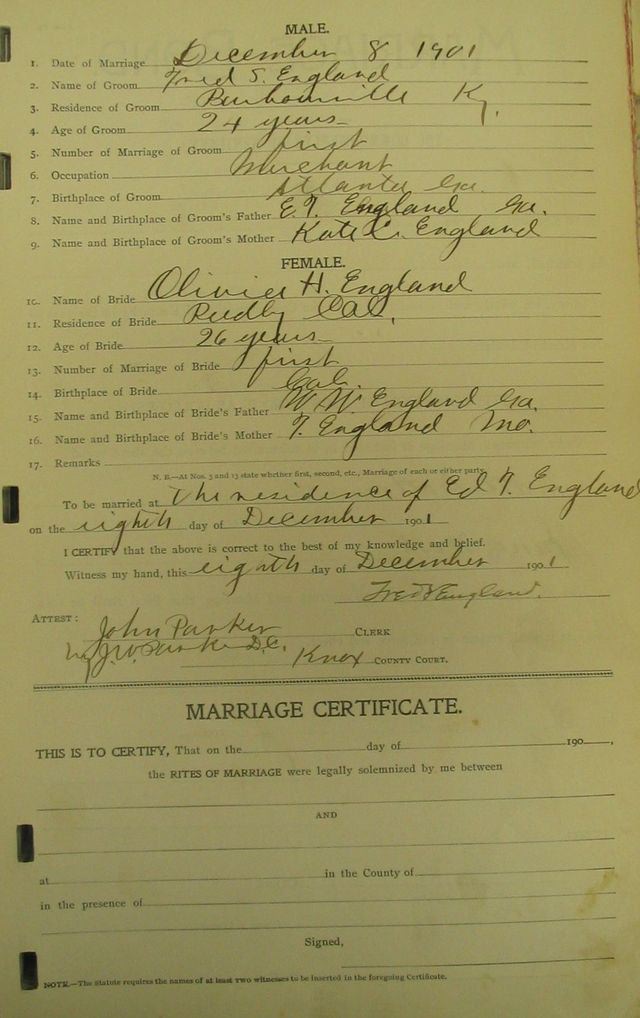 MALE.
1. Date of Marriage December 8 1901
2. Name of Groom Fred S. England
3. Residence of Groom Barbourville Ky.
4. Age of Groom 24 years
5. Number of Marriage of Groom first
6. Occupation Merchant
7. Birthplace of Groom Atlanta Ga.
8. Name and Birthplace of Groom's Father E. T. England Ga.
9. Name and Birthplace of Groom's Mother Kate C. England
FEMALE.
10. Name of Bride Olivia H. England
11. Residence of Bride Reedly Cal.
12. Age of Bride 26 years
13. Number of Marriage of Bride first
14. Birthplace of Bride Cal.
15. Name and Birthplace of Bride's Father W. W. England Ga.
16. Name and Birthplace of Bride's Mother T. England Mo.
17. Remarks
N. B.—At Nos. 5 and 13 state whether first, second, etc., Marriage of each or either party.
To be married at the residence of Ed T. England
on the eighth day of December 1901
I CERTIFY that the above is correct to the best of my knowledge and belief.
Witness my hand, this eighth day of December 1901
Fred S England.
ATTEST:
John Parker CLERK
by J. W. Parker D.C.
Knox COUNTY COURT.
MARRIAGE CERTIFICATE.
THIS IS TO CERTIFY, That on the day of 190 ,
the RITES OF MARRIAGE were legally solemnized by me between
AND
at in the County of
in the presence of
Signed,
NOTE.—The Statute requires the names of at least two witnesses to be inserted in the foregoing Certificate.